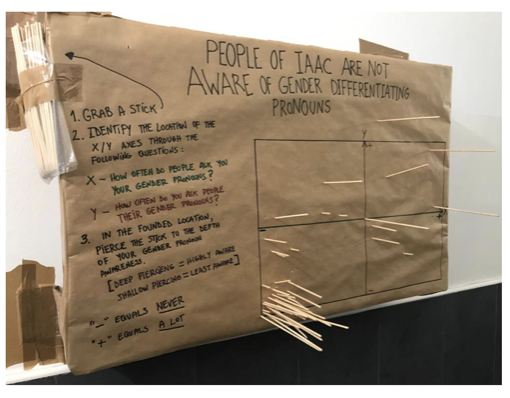 PEOPLE OF IAAC ARE NOT
AWARE OF GENDER DIFFERENTIATING
PRONOUNS
1. GRAB A STICK
2. IDENTIFY THE LOCATION OF THE
X/Y AXES THROUGH THE
FOLLOWING QUESTIONS:
X - HOW OFTEN DO PEOPLE ASK YOU
YOUR GENDER PRONOUNS?
Y - HOW OFTEN DO YOU ASK PEOPLE
THEIR GENDER PRONOUNS?
3. IN THE FOUNDED LOCATION,
PIERCE THE STICK TO THE DEPTH
OF YOUR GENDER PRONOUN
AWARENESS.
[DEEP PIERCING = HIGHLY AWARE
SHALLOW PIERCING = LEAST AWARE]
"-" EQUALS NEVER
"+" EQUALS A LOT
Y
+
-
+
-